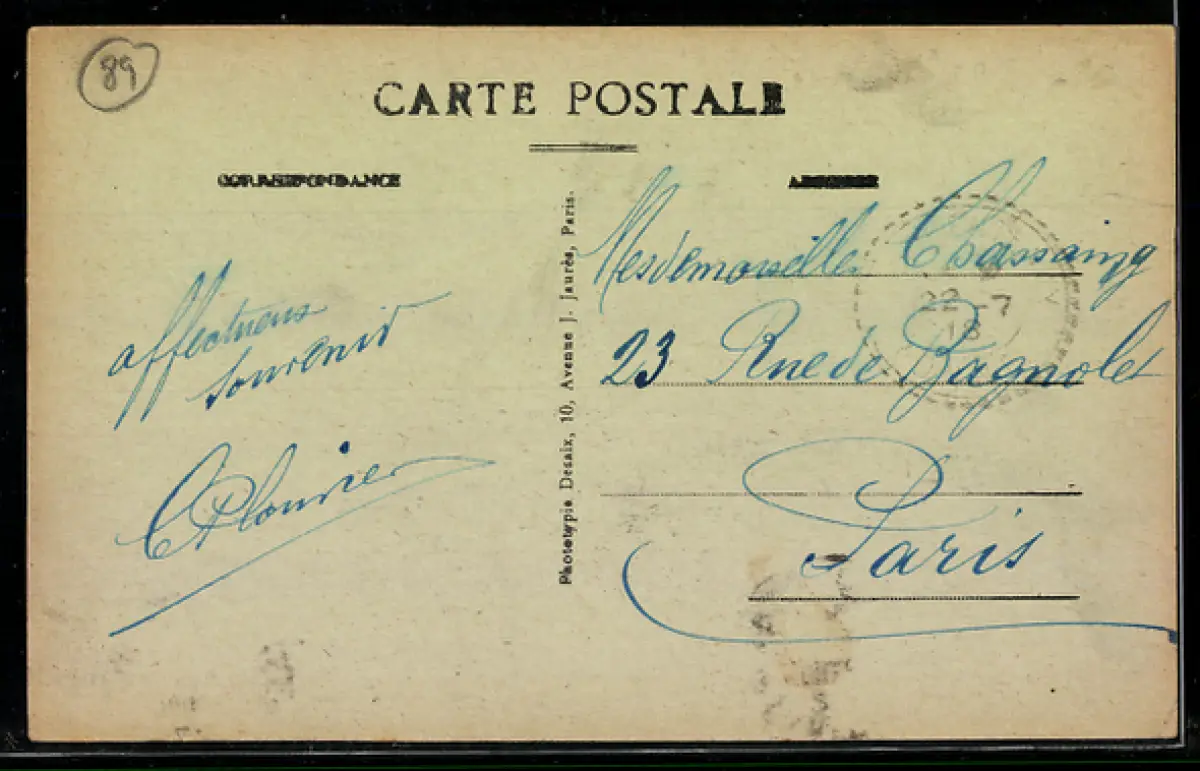 89
CARTE POSTALE
CORRESPONDANCE
ADRESSE
affectueux
souvenir
Photoypie Desaix, 10, Avenue J. Jaurès, Paris.
Mesdemoiselles Chassaing
22 -7
18
23 Rue de Bagnolet
Paris